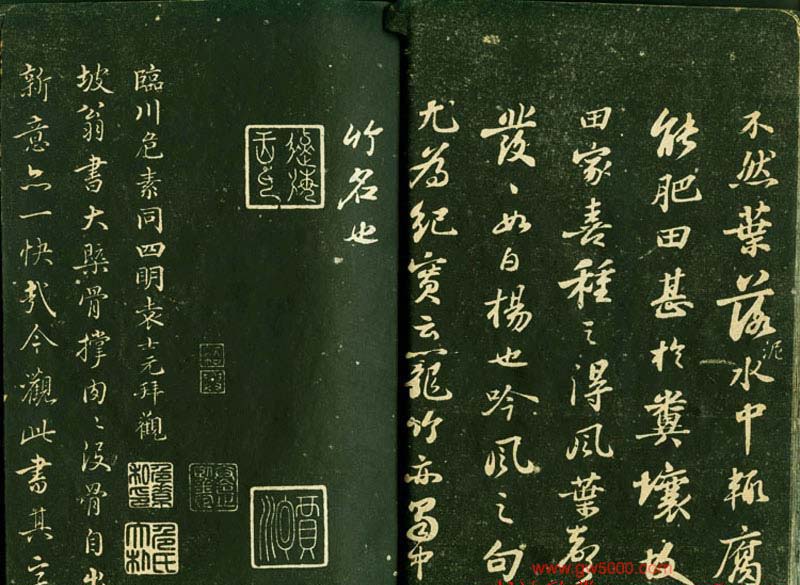 不然葉落泥水中輒腐
能肥田甚於糞壤故
田家喜種之得風葉聲
發〻如白楊也吟風之句
尤為紀實云籠竹亦蜀中
竹名也
臨川危素同四明袁士元拜觀
危素私印
危氏太朴
坡翁書大槩骨撐肉〻沒骨自出
新意亦一快哉今觀此書其
www.gw5000.com